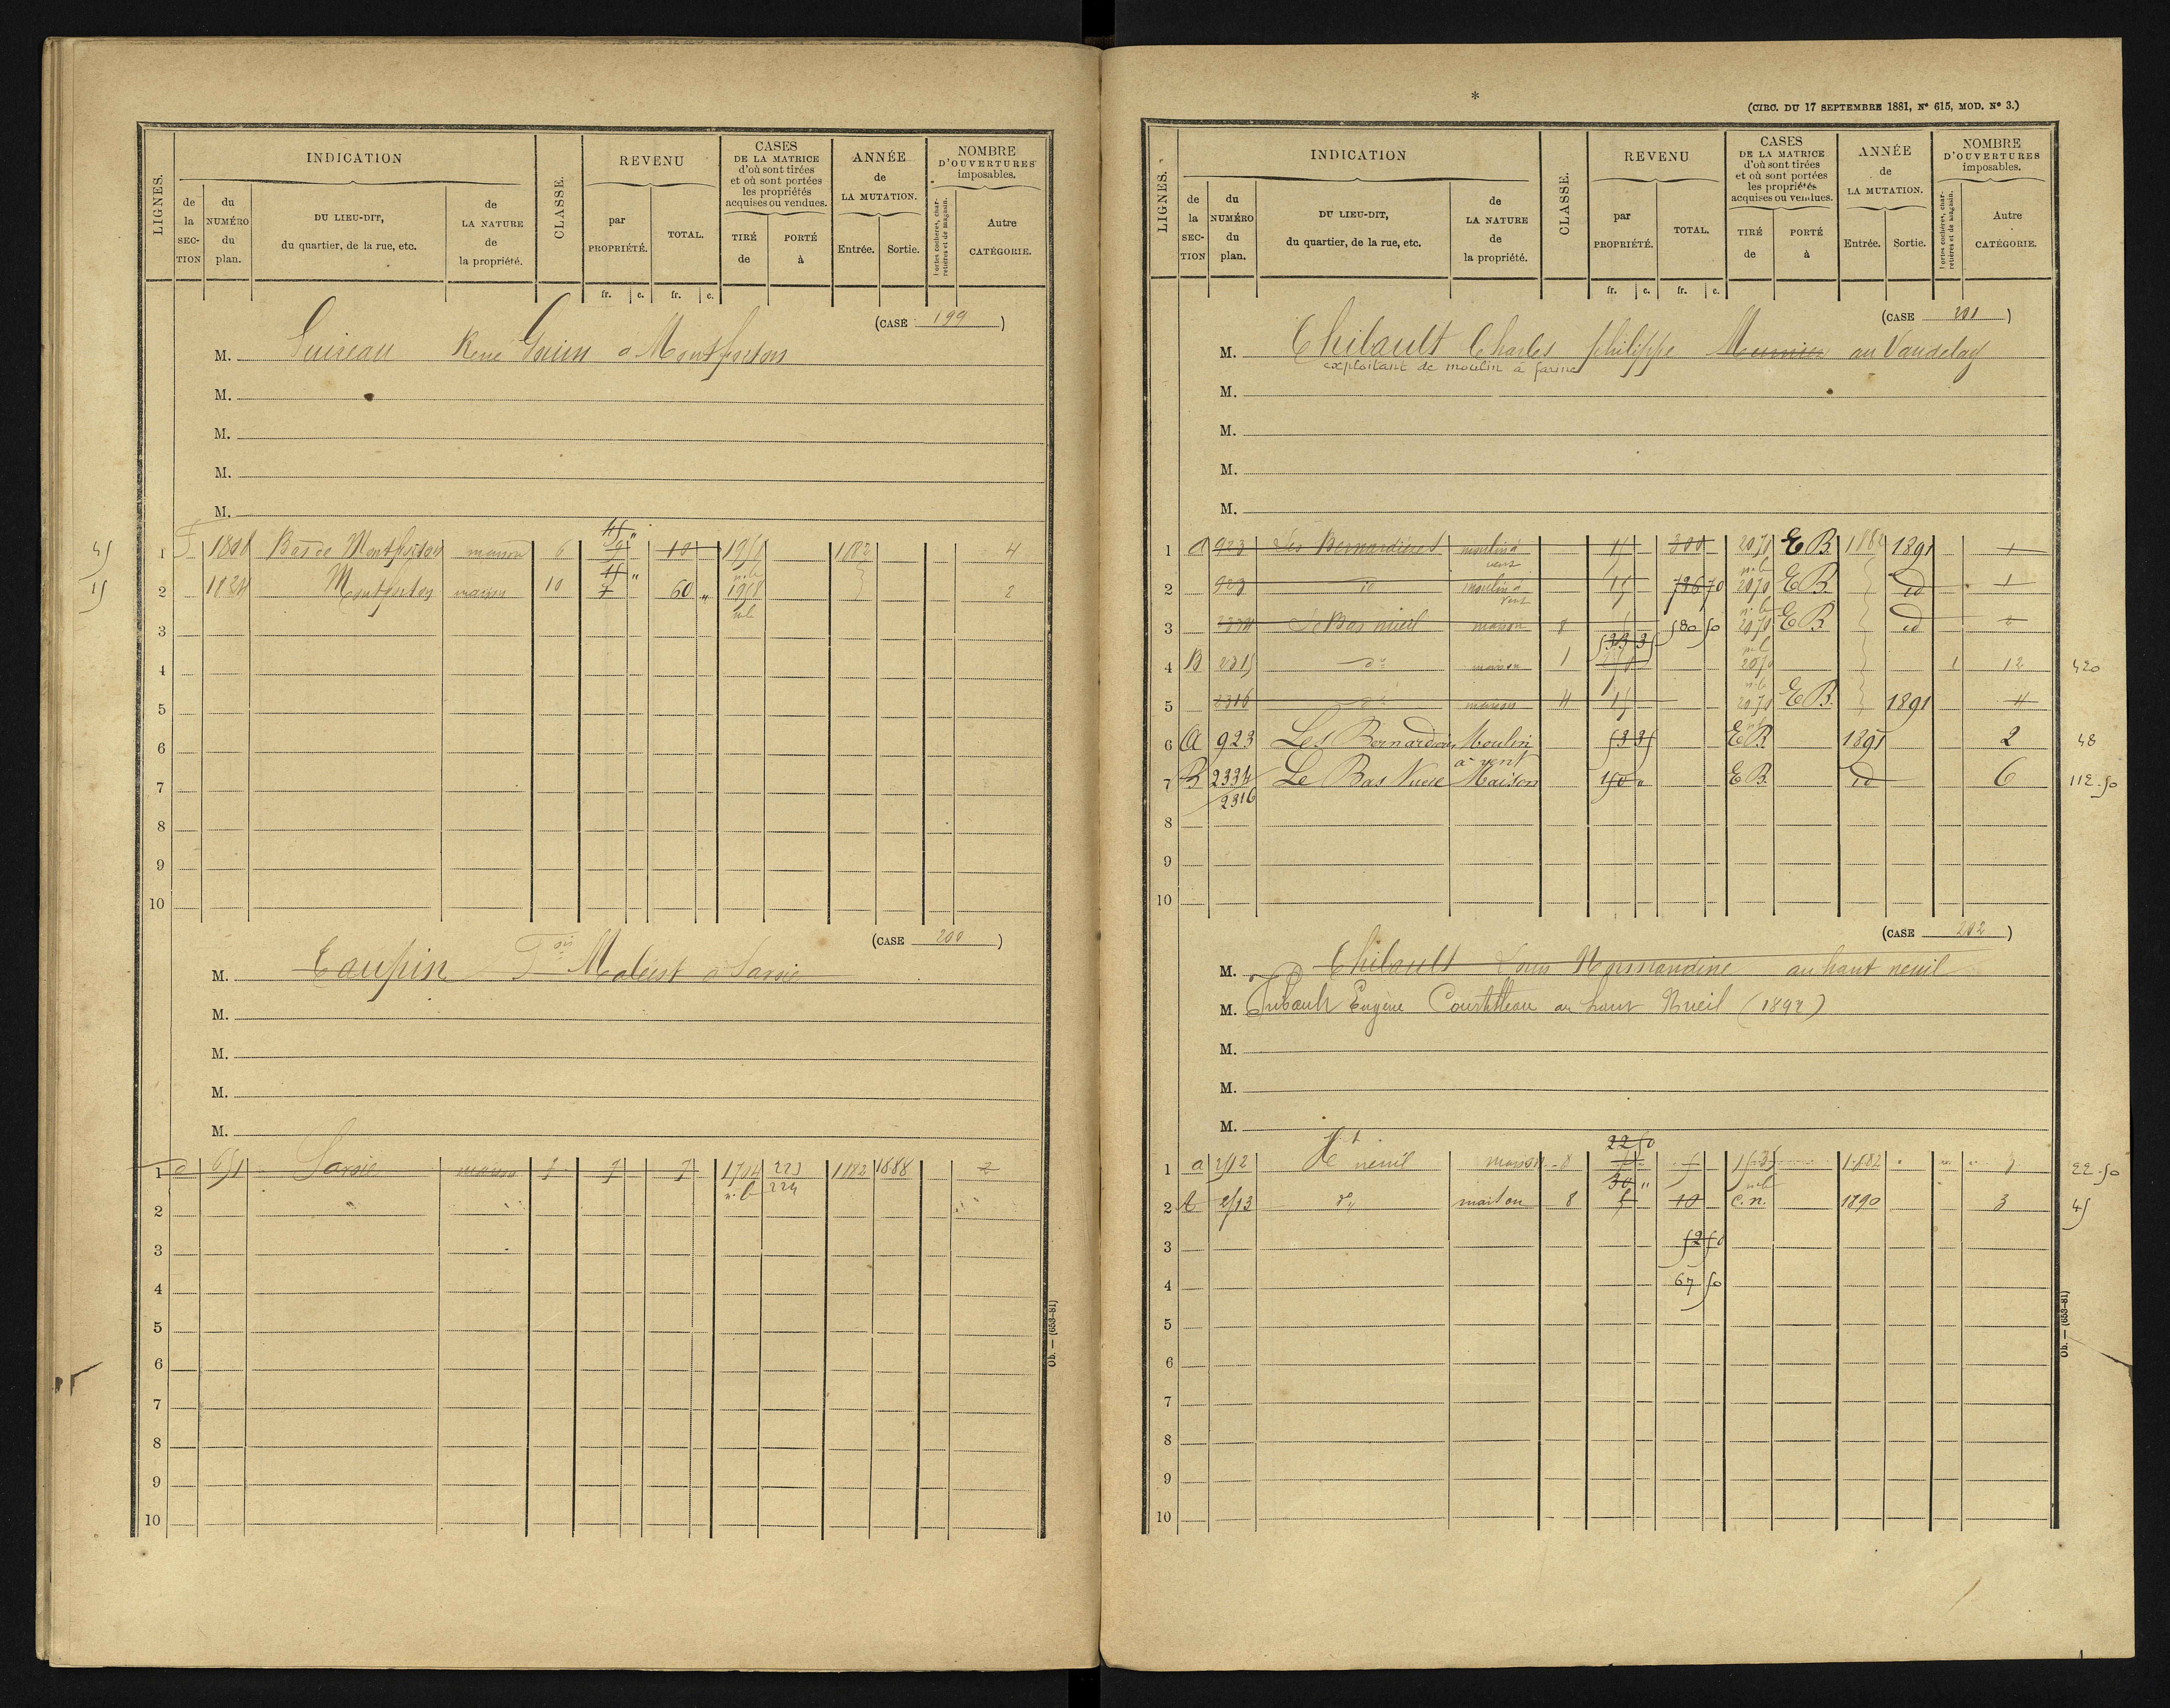 LIGNES.
INDICATION
de la SECTION
du NUMÉRO du plan.
DU LIEU-DIT, du quartier, de la rue, etc.
de LA NATURE de la propriété.
CLASSE.
REVENU
par PROPRIÉTÉ.
TOTAL.
CASES DE LA MATRICE d'où sont tirées et où sont portées les propriétés acquises ou vendues.
TIRÉ de
PORTÉ à
ANNÉE de LA MUTATION.
Entrée.
Sortie.
NOMBRE D'OUVERTURES imposables.
Portes cochères, charretières et de magasin.
Autre CATÉGORIE.
fr. c. fr. c.
(CASE 199)
M. René à Montforton
M.
M.
M.
M.
45 1 Bas de maison 6 10 1882 4
15 2 Montforton maison 10 60 " 2
3
4
5
6
7
8
9
10
(CASE 200)
M. Taupin à Sarsie
M.
M.
M.
M.
1 651 Sarsie maison 7 7 7 1882 1888 2
2
3
4
5
6
7
8
9
10
Ob. — (653-81)
*
(CIRC. DU 17 SEPTEMBRE 1881, N° 615, MOD. N° 3.)
LIGNES.
INDICATION
de la SECTION
du NUMÉRO du plan.
DU LIEU-DIT, du quartier, de la rue, etc.
de LA NATURE de la propriété.
CLASSE.
REVENU
par PROPRIÉTÉ.
TOTAL.
CASES DE LA MATRICE d'où sont tirées et où sont portées les propriétés acquises ou vendues.
TIRÉ de
PORTÉ à
ANNÉE de LA MUTATION.
Entrée.
Sortie.
NOMBRE D'OUVERTURES imposables.
Portes cochères, charretières et de magasin.
Autre CATÉGORIE.
fr. c. fr. c.
(CASE 201)
M. Thibault Charles philippe Meunier au Vaudelay
exploitant de moulin à farine
M.
M.
M.
M.
1 a 923 Les Bernardières moulin à vent 15 300 2070 E B 1882 1891 1
2 923 id moulin à vent 15 726 70 2070 E B id 1
3 2334 Le Bas nueil maison 8 580 50 2070 E B id 2
4 B 2315 do maison 1 2070 1 12 420
5 2316 do maison 4 15 2070 E B. 1891 4
6 A 923 Les Moulin à vent 53 35 E B 1891 2 48
7 B 2334 2316 Le Bas Maison 150 " E B. id 6 112.50
8
9
10
(CASE 202)
M. Thibault Louis au haut neuil
M. Thibault Eugène au haut Nueil
M.
M.
M.
22 50
1 a 2512 Ht neuil maison 8 5 5 1535 1882 3 22.50
30 "
2 A 2513 do maison 8 5 10 c. n. 1890 3 45
3 52 50
4 67 50
5
6
7
8
9
10
Ob. — (653-81)